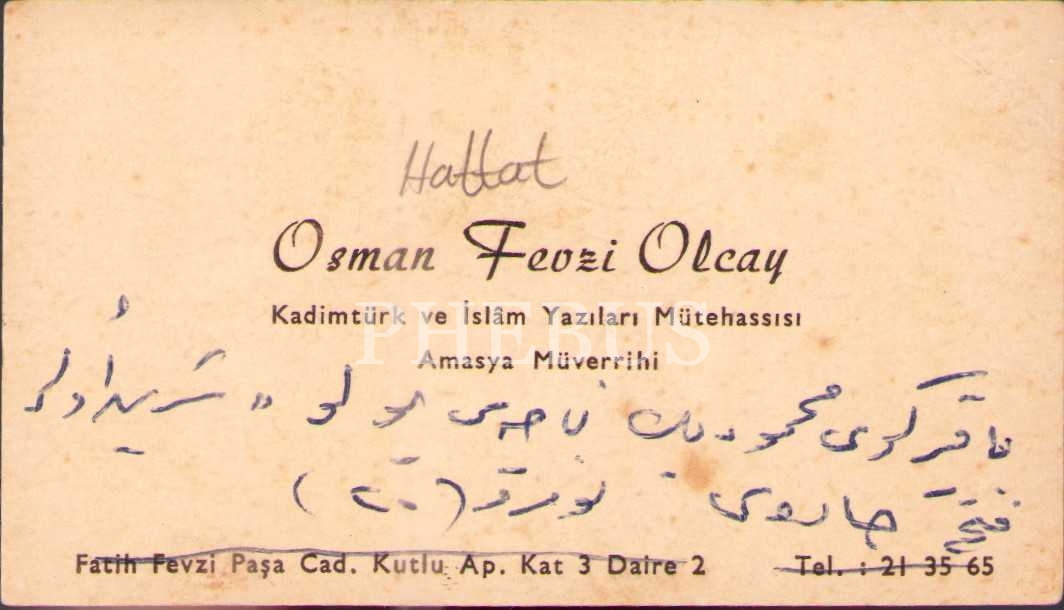 Hattat
Osman Fevzi Olcay
Kadimtürk ve İslâm Yazıları Mütehassısı
PHEBUS
Amasya Müverrihi
باقرکوی محمود بك
فتح نومرو
Fatih Fevzi Paşa Cad. Kutlu Ap. Kat 3 Daire 2 Tel. : 21 35 65